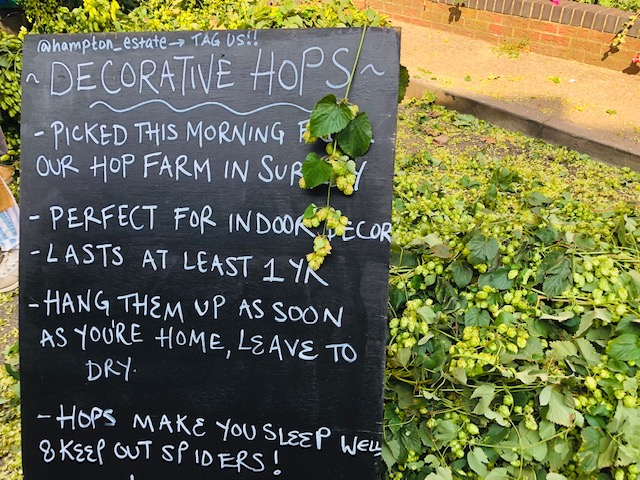 @hampton_estate → TAG US!!
~ DECORATIVE HOPS ~
- PICKED THIS MORNING
OUR HOP FARM IN
- PERFECT FOR INDOOR DECOR
- LASTS AT LEAST 1 YR
- HANG THEM UP AS SOON
AS YOU'RE HOME, LEAVE TO
DRY.
- HOPS MAKE YOU SLEEP WELL
& KEEP OUT SPIDERS!